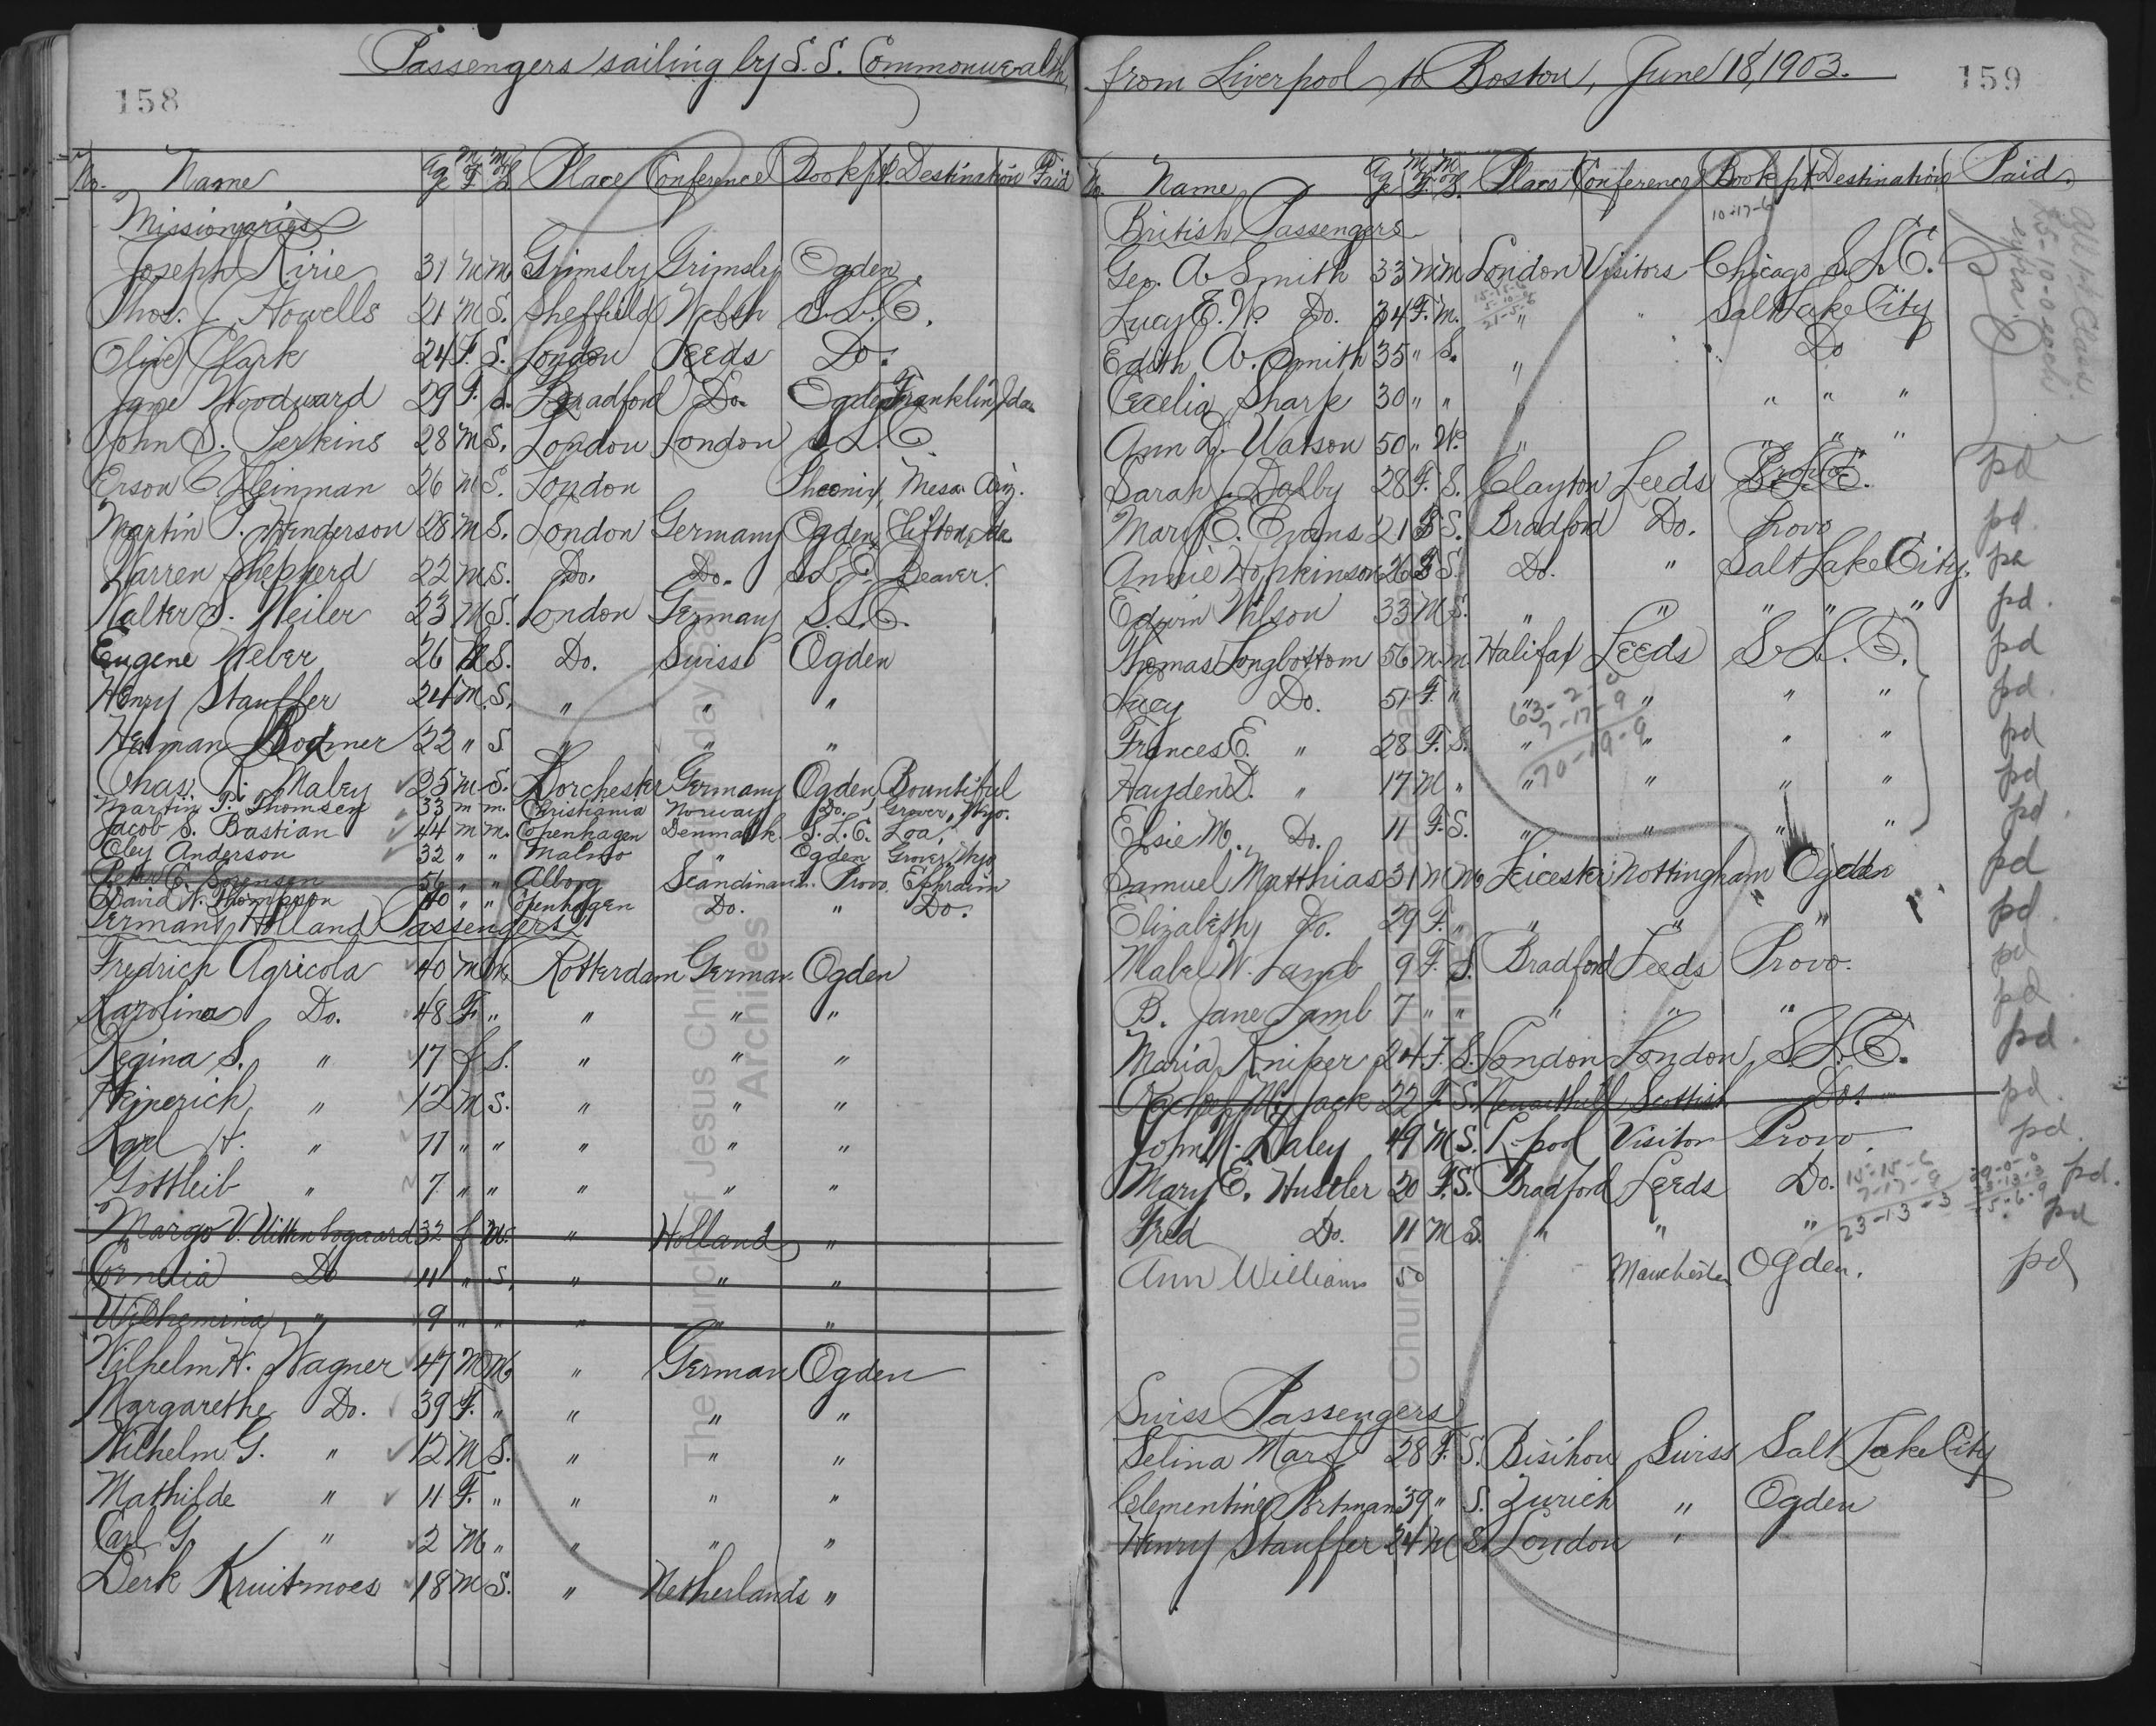 158
Passengers sailing by S.S. Commonwealth
No. Name Age M F M S Place Conference Book pt. Destination Paid
Missionaries
Joseph Ririe 31 M M. Grimsby Grimsby Ogden
Thos. J. Howells 21 M S. Sheffield Welsh S.L.C.
Olive Clark 24 F. S. London Leeds Do.
Jane Woodward 29 F. S. Bradford Do. Ogden Franklin, Ida.
John S. Perkins 28 M S. London London S.L.C.
Erson C. Heinman 26 M S. London Pheonix, Mesa Ariz.
Martin P. Henderson 28 M S. London Germany Ogden, Clifton, Ida
Warren Shepherd 22 M S. Do. Do. S.L.C. Beaver.
Walter S. Weiler 23 M S. London Germany S.L.C.
Eugene Weber 26 M S. Do. Swiss Ogden
Henry Stauffer 24 M. S. " " "
Herman Bodmer 22 " S " " "
Chas. R. Maley 25 M S. Dorchester Germany Ogden Bountiful
Martin P. Thomsen 33 m m. Christiania Norway Do. Grover, Wyo.
Jacob S. Bastian 44 m m. Copenhagen Denmark S.L.C. Loa
Oley Anderson 32 " " Malmo " Ogden Grover, Wyo
Peter C. Sorensen 56 " " Alborg Scandinavn. Provo Ephraim
David N. Thompson 40 " " Copenhagen Do. " Do.
German & Holland Passengers
Fredrich Agricola 40 M M. Rotterdam German Ogden
Karolina Do. 48 F. " " " "
Regina S. " 17 f S. " " "
Heinerich " 12 M S. " " "
Karl H. " 11 " " " " "
Gottleib " 7 " " " " "
Margo V. Uittenbogaard 32 f W. " Holland "
Cornelia Do 11 " S. " " "
Wilhemina " 9 " " " " "
Wilhelm H. Wagner 47 M M. " German Ogden
Margarethe Do. 39 F. " " " "
Wilhelm G. " 12 M S. " " "
Mathilde " 11 F. " " " "
Carl G. " 2 M " " " "
Derk Kruitmoes 18 M S. " Netherlands "
159
from Liverpool, to Boston, June 18, 1903.
No. Name Age M F. M or S. Place Conference Book pt Destination Paid
British Passengers 10-17-6
Geo. A Smith 33 M M London Visitors Chicago S.L.C.
Lucy E. W. Do. 34 F. M. " " Salt Lake City
Edith A. Smith 35 " S. " " Do
Cecelia Sharp 30 " " " " " "
Ann L. Watson 50 " W. " " " "
Sarah J. Dalby 28 F. S. Clayton Leeds pd
Mary E. Evans 21 F S. Bradford Do. Provo pd.
Annie Hopkinson 26 F S. Do. " Salt Lake City. pd
Edwin Wilson 33 M S. " " " " " pd.
Thomas Longbottom 56 M. m Halifax Leeds S.L.C. pd
Lucy Do. 51 F. " " " " " pd.
63-2-0
7-17-9
70-19-9
Frances E. " 28 F. S. " " " " pd
Hayden L. " 17 M " " " " " pd
Elsie M. Do. 11 F. S. " " " " pd.
Samuel Matthias 31 M M. Leicester Nottingham Ogden pd
Elizabeth Do. 29 F. " " " " pd.
Mabel W. Lamb 9 F. S. Bradford Leeds Provo. pd
B. Jane Lamb 7 " " " " " pd
Maria Kniper 24 F. S. London London S.L.C. pd.
Rachel Mc Jack 22 F. S. Newarthill Scottish Do. pd.
John M. Daley 49 M S. L-pool Visitor Provo. pd.
Mary E. Hustler 20 F. S. Bradford Leeds Do. pd.
15-15-6
7-17-9
23-13-3
Fred Do. 11 M S. " " " pd
Ann Williams 50 Manchester Ogden. pd
Swiss Passengers
Selina Marf 28 F. S. Bisihou Swiss Salt Lake City
Clementine Portman 39 " S. Zurich " Ogden
Henry Stauffer 24 M S. London "
The Church of Jesus Christ of Latter-day Saints
Archives